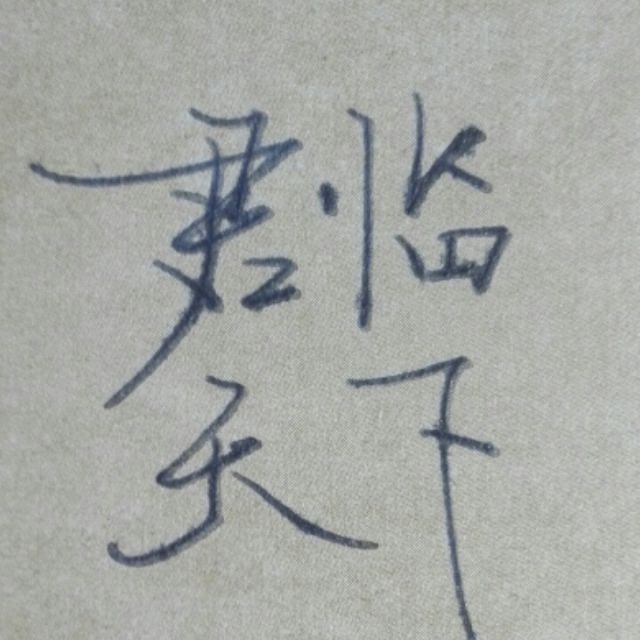 君临
天下